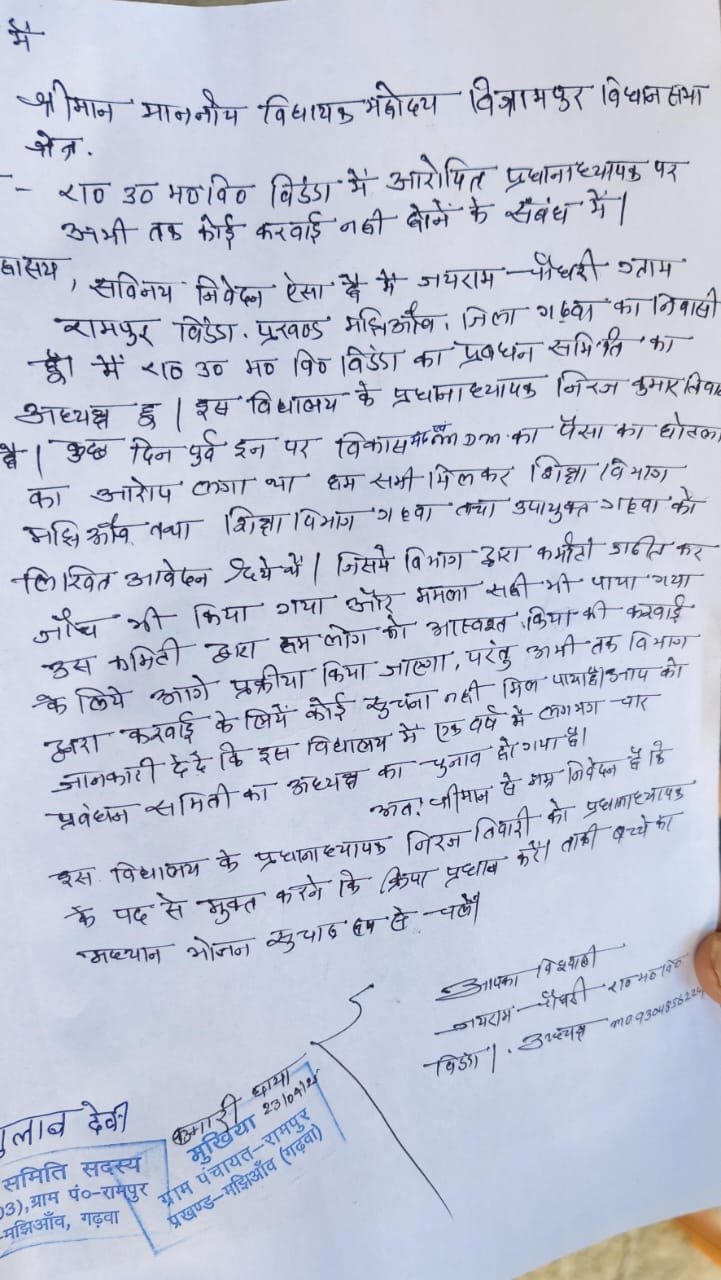 में
श्रीमान माननीय विधायक महोदय विश्रामपुर विधानसभा
क्षेत्र.
- रा० उ० म० वि० विडंडा में आरोपित प्रधानाध्यापक पर
अभी तक कोई करवाई नही होने के संबंध में|
हाशय, सविनय निवेदन ऐसा है मैं जयराम चौधरी ग्राम
रामपुर विडंडा. प्रखण्ड मझिआँव. जिला गढ़वा का निवासी
हूँ। मैं रा० उ० म० वि० विडंडा का प्रबधन समिति का
अध्यक्ष हू | इस विद्यालय के प्रधानाध्यापक निरज कुमार तिवा
है | कुछ दिन पुर्व इन पर विकास एवं MDM का पैसा का घोटला
का आरोप लगा था हम सभी मिलकर शिक्षा विभाग
मझिआँव तथा शिक्षा विभाग गढ़वा तथा उपायुक्त गढ़वा को
लिखित आवेदन दिये थें| जिसमे विभाग द्वारा कमीटी गठीत कर
जाँच भी किया गया और ममला सही भी पाया गया
उस कमिटी द्वारा हम लोग को आस्वश्त किया की करवाई
के लिये आगे प्रक्रीया किया जाएगा, परंतु अभी तक विभाग
द्वारा करवाई के लियें कोई सुचना नही मिल पाया है। आप को
जानकारी दे दें कि इस विद्यालय में एक वर्ष में लगभग चार
प्रबंधन समिती का अध्यक्ष का चुनाव हो गया है।
अतः श्रीमान से नम्र निवेदन है कि
इस विद्यालय के प्रधानाध्यापक निरज तिवारी को प्रधानाध्यापक
के पद से मुक्त करने कि क्रिपा प्रधाव करें। ताकी बच्चे का
मध्यान भोजन सुचारु रूप से चलें|
आपका विश्वासी
जयराम चौधरी रा० म० वि०
विडंडा|. अध्यक्ष mo9304856224
ुलाब देवी
समिति सदस्य
03),ग्राम पं०-रामपुर
-मझिआँव, गढ़वा
कुमारी छाया
23/04/25
मुखिया
ग्राम पंचायत-रामपुर
प्रखण्ड-मझिआँव (गढ़वा)